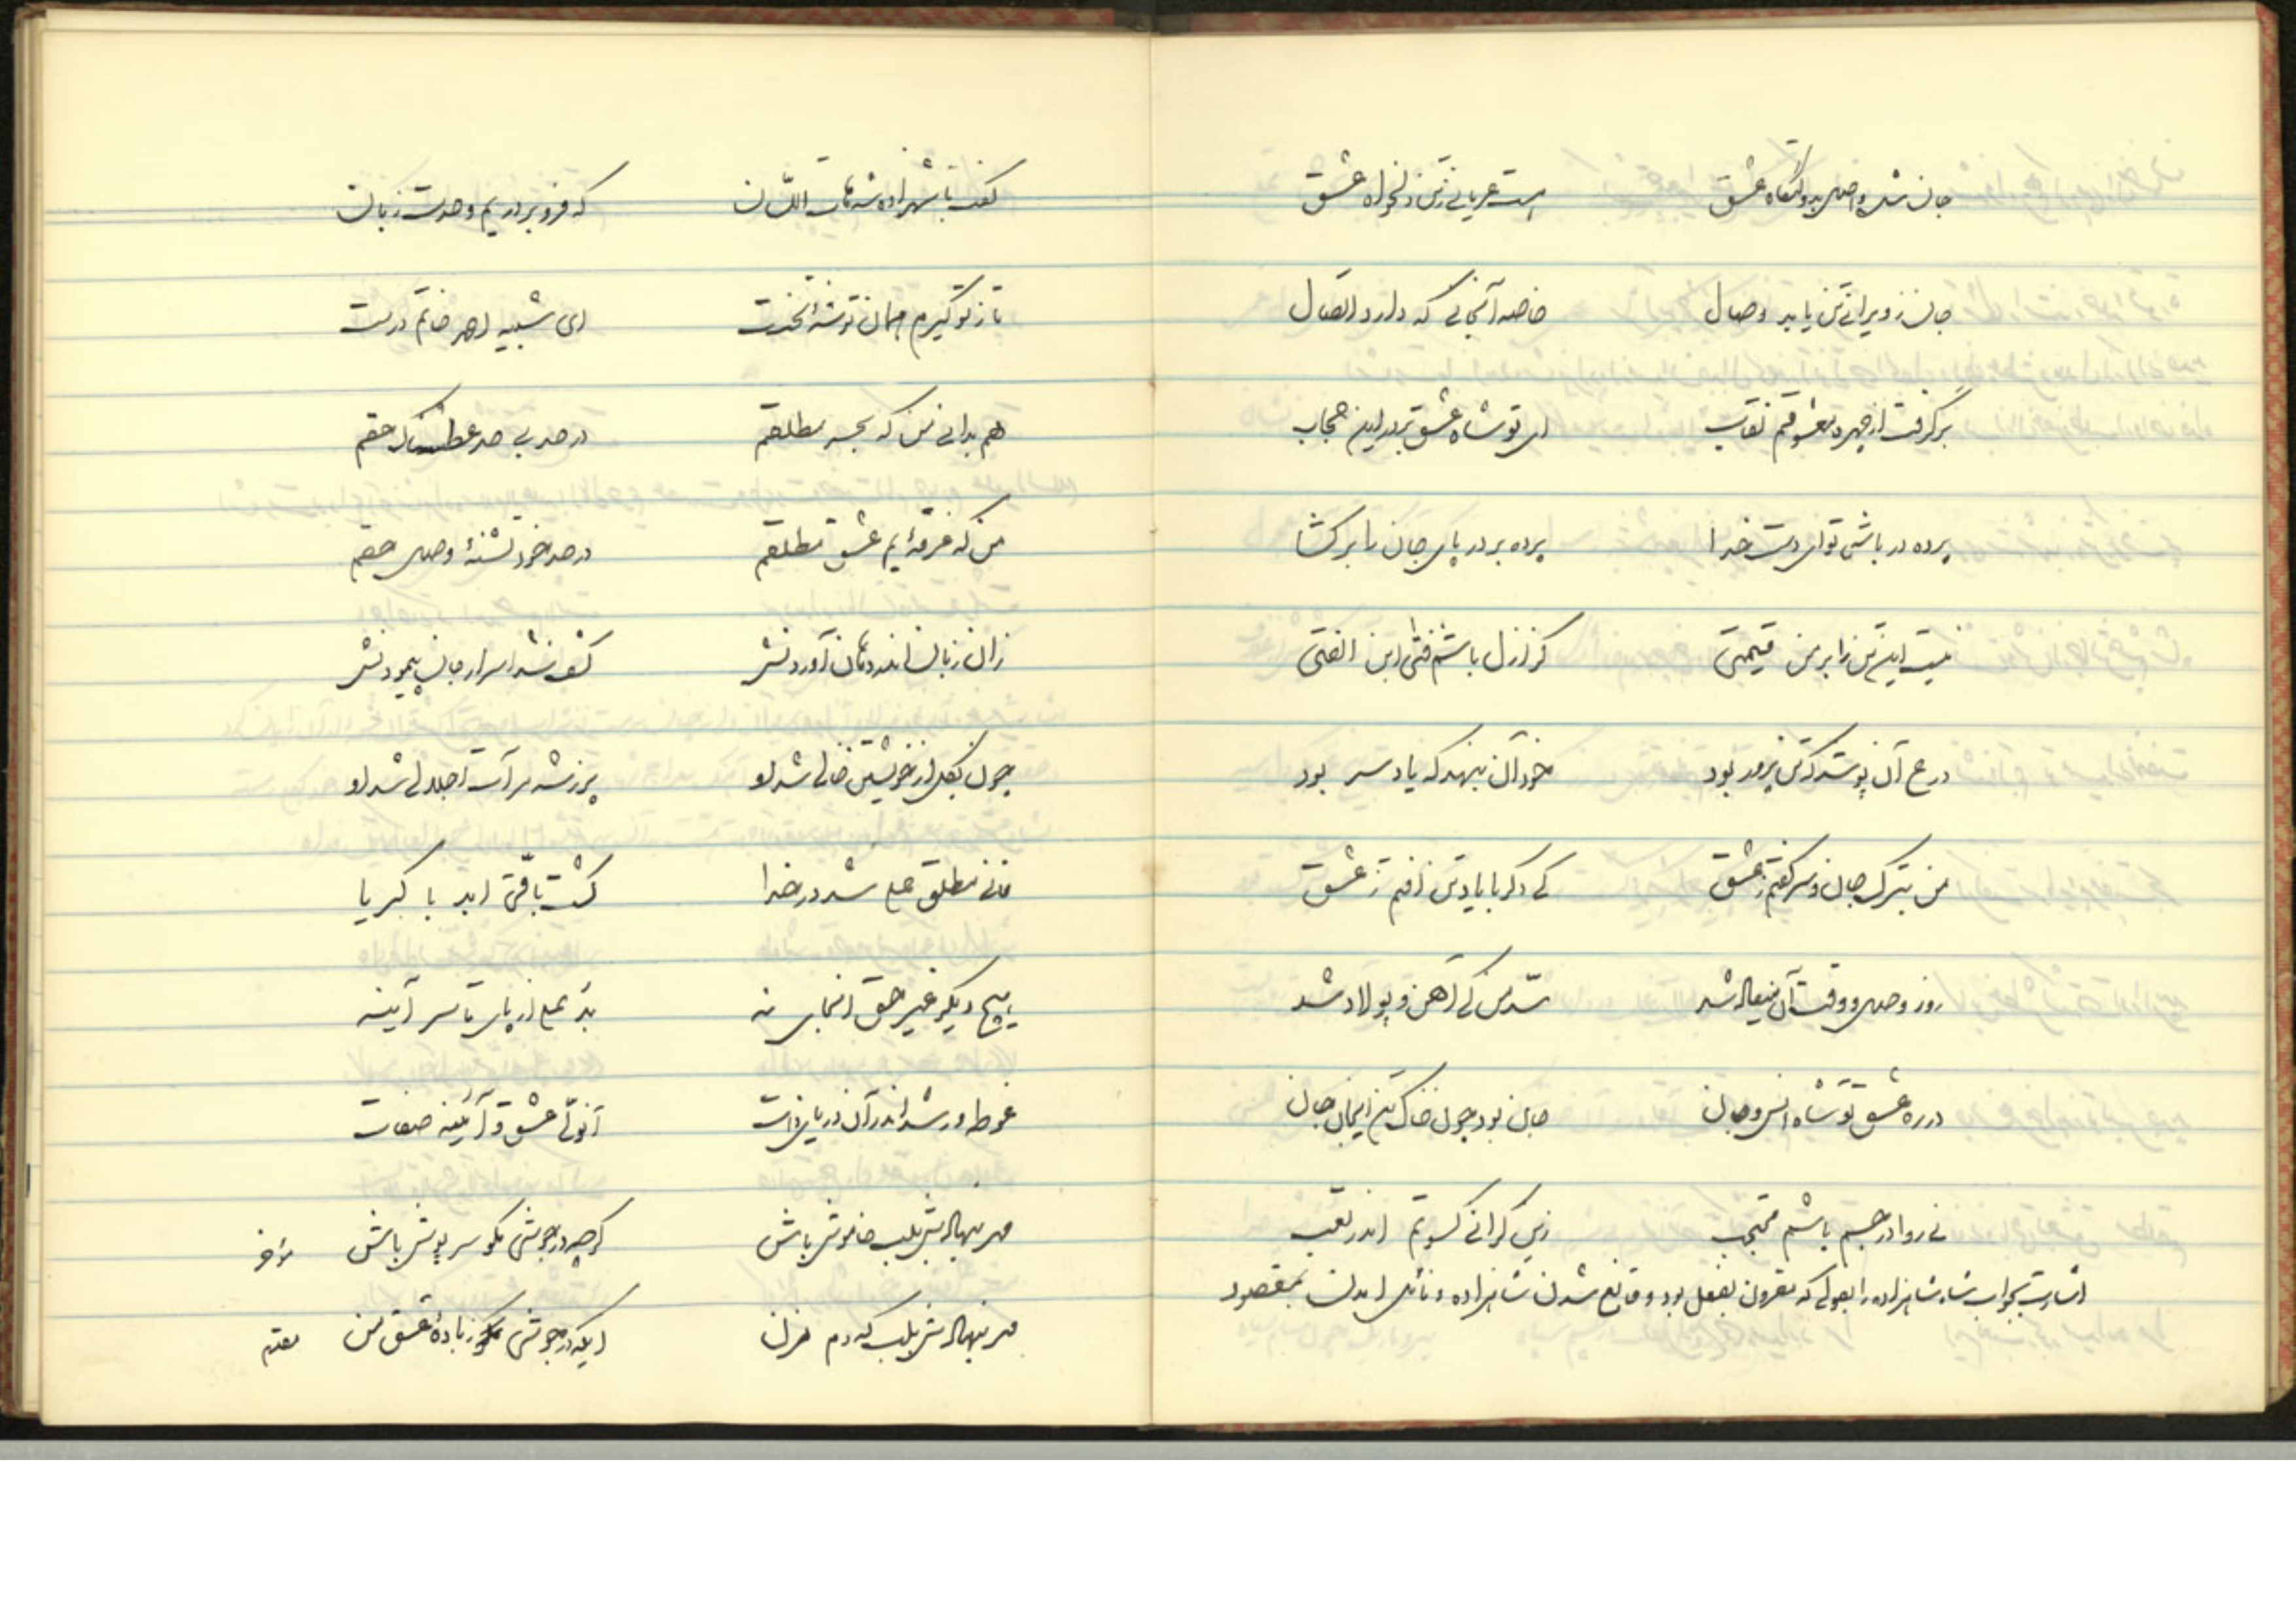 جان شد واصل بدولتگاه عشق هست عریانی ز تن دلخواه عشق
جان ز ویرانی تن یابد وصال خاصه آنجانی که دارد اتصال
برگرفت از چهره معشوقم نقاب ای تو شاه عشق بردر این حجاب
پرده در باشی تو ای دست خدا پرده بردر پای جان را برکشا
نیست این تن را بر من قیمتی کز ازل باشم فتی ابن الفتی
درع آن پوشد که تن پرور بود خود آن بنهد که یاد سر بود
من بترک جان و سر گفتم ز عشق کی دگر با یاد تن افتم ز عشق
روز وصل و وقت آن میعاد شد سد من کی آهن و پولاد شد
در ره عشق تو شاه انس و جان جان بود چون خاک تن ایجان جان
نی روا در جسم باشم محتجب زین گرانی کسوتم اندر تعب
اشارت بجواب شاه شاهزاده را بقولی که مقرون بفعل بود و قانع شدن شاهزاده و نائل آمدن بمقصود
گفت با شهزاده شه هات اللسان که فرو بر در یم وحدت زبان
باز تو گیرم همان توشه نخست ای شبیه احمد خاتم درست
هم بدانی من که بحر مطلقم در حد بی حد عطشناک حقم
من که غرقه یم عشق مطلقم در حد خود تشنهٔ وصل حقم
زان زبان اندر دهان آوردش کشف شد اسرار جان پیمودش
چون بکل از خویشتن خالی شد او پرزشه مرآت اجلالی شد او
فانی مطلق علی شد در خدا گشت باقی ابد با کبریا
هیچ دیگر غیر حق آنجای نه بد علی از پای تا سر آینه
غوطه‌ور شد اندر آن دریای ذات آنولی عشق و آیینه صفات
مهر بنهادش بلب خاموش باش گرچه در جوشی نکو سرپوش باش مؤخر
مهر بنهادش بلب که دم مزن ایکه در جوشی ز بادهٔ عشق من مقدم